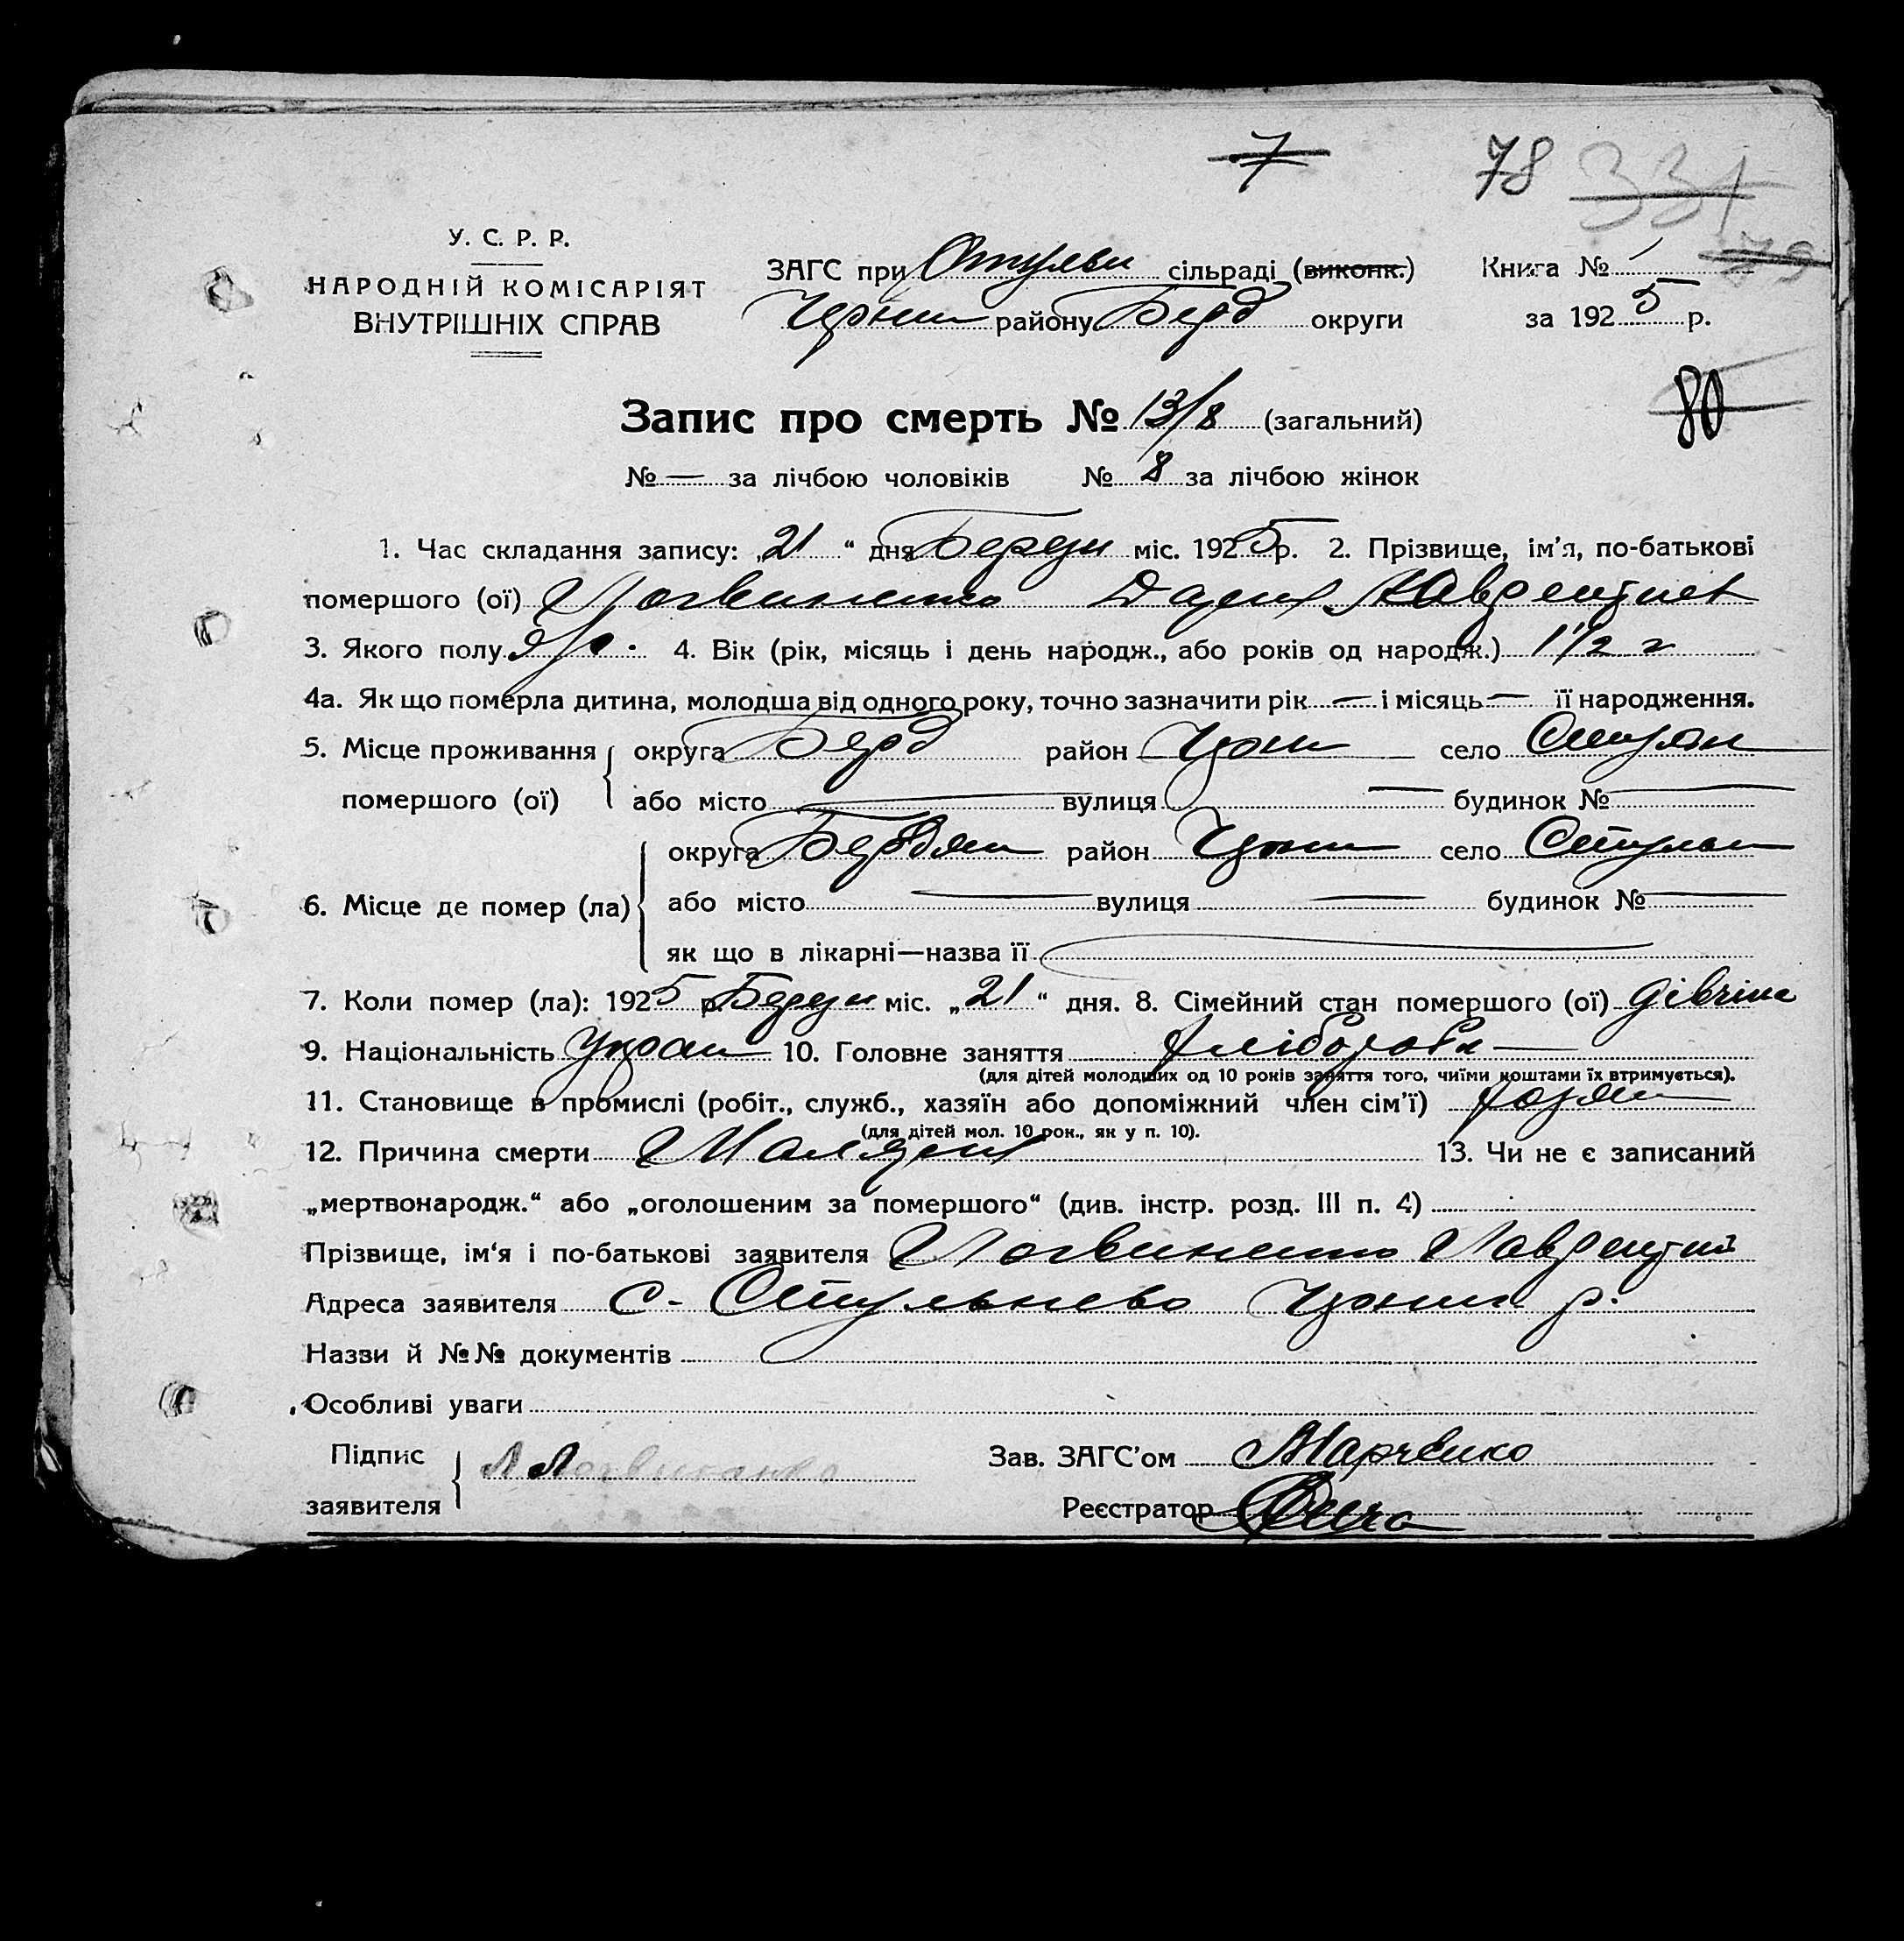 7 78 331
79
У. С. Р. Р.
НАРОДНІЙ КОМІСАРІЯТ
ВНУТРІШНІХ СПРАВ
ЗАГС при сільраді (виконк.) Книга № 1
району Берд округи за 1925 р.
80
Запис про смерть № 13/8 (загальний)
№ — за лічбою чоловіків № 8 за лічбою жінок
1. Час складання запису: „21“ дня Березн міс. 1925 р. 2. Прізвище, ім'я, по-батькові
помершого (ої) Логвиненко
3. Якого полу 4. Вік (рік, місяць і день народж., або років од народж.) 1 1/2 г
4а. Як що померла дитина, молодша від одного року, точно зазначити рік — і місяць — її народження.
5. Місце проживання округа Берд район село
помершого (ої) або місто — вулиця — будинок № —
округа Бердян район село
6. Місце де помер (ла) або місто — вулиця — будинок № —
як що в лікарні—назва її
7. Коли помер (ла): 1925 р. Березн міс. „21“ дня. 8. Сімейний стан помершого (ої) дівчина
9. Національність Укран 10. Головне заняття хлібороб
(для дітей молодших од 10 років заняття того, чиїми коштами їх втримується).
11. Становище в промислі (робіт., служб., хазяїн або допоміжний член сім'ї)
(для дітей мол. 10 рок., як у п. 10).
12. Причина смерти 13. Чи не є записаний
„мертвонародж.“ або „оголошеним за помершого“ (див. інстр. розд. III п. 4)
Прізвище, ім'я і по-батькові заявителя Логвиненко Лаврентій
Адреса заявителя с- Стульнево р.
Назви й №№ документів
Особливі уваги
Підпис
заявителя Л Логвиненко
Зав. ЗАГС'ом Марченко
Реєстратор